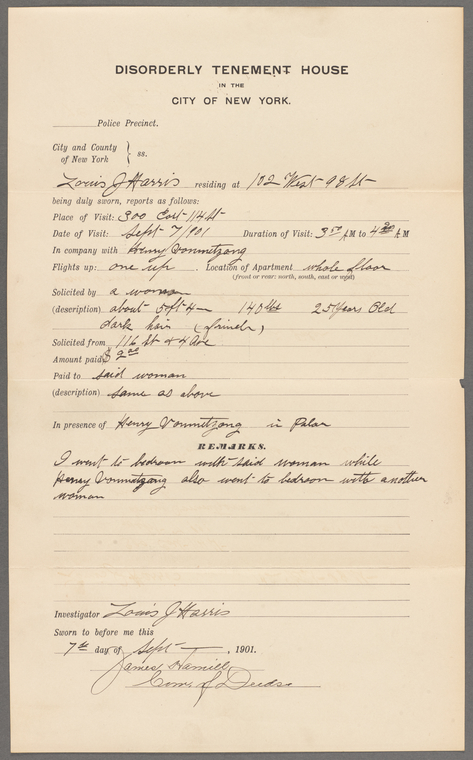 DISORDERLY TENEMENT HOUSE
IN THE
CITY OF NEW YORK.
Police Precinct.
City and County
of New York } ss.
Louis J Harris residing at 102 West 98 st
being duly sworn, reports as follows:
Place of Visit: 300 East 114 st
Date of Visit: Sept 7/1901 Duration of Visit: 3 50 AM to 4 20 AM
In company with Henry
Flights up: one up. Location of Apartment whole floor
(front or rear: north, south, east or west)
Solicited by a woman
(description) about 5 ft 4 in 140 lbs 25 years Old
dark hair
Solicited from 116 st & 4 Ave
Amount paid $ 2.00
Paid to said woman
(description) same as above
In presence of Henry in Palar
REMARKS.
I went to bedroom with said woman while
Henry also went to bedroom with another
woman
Investigator Louis J Harris
Sworn to before me this
7th day of Sept, 1901.
James Hamill
Com. of Deeds